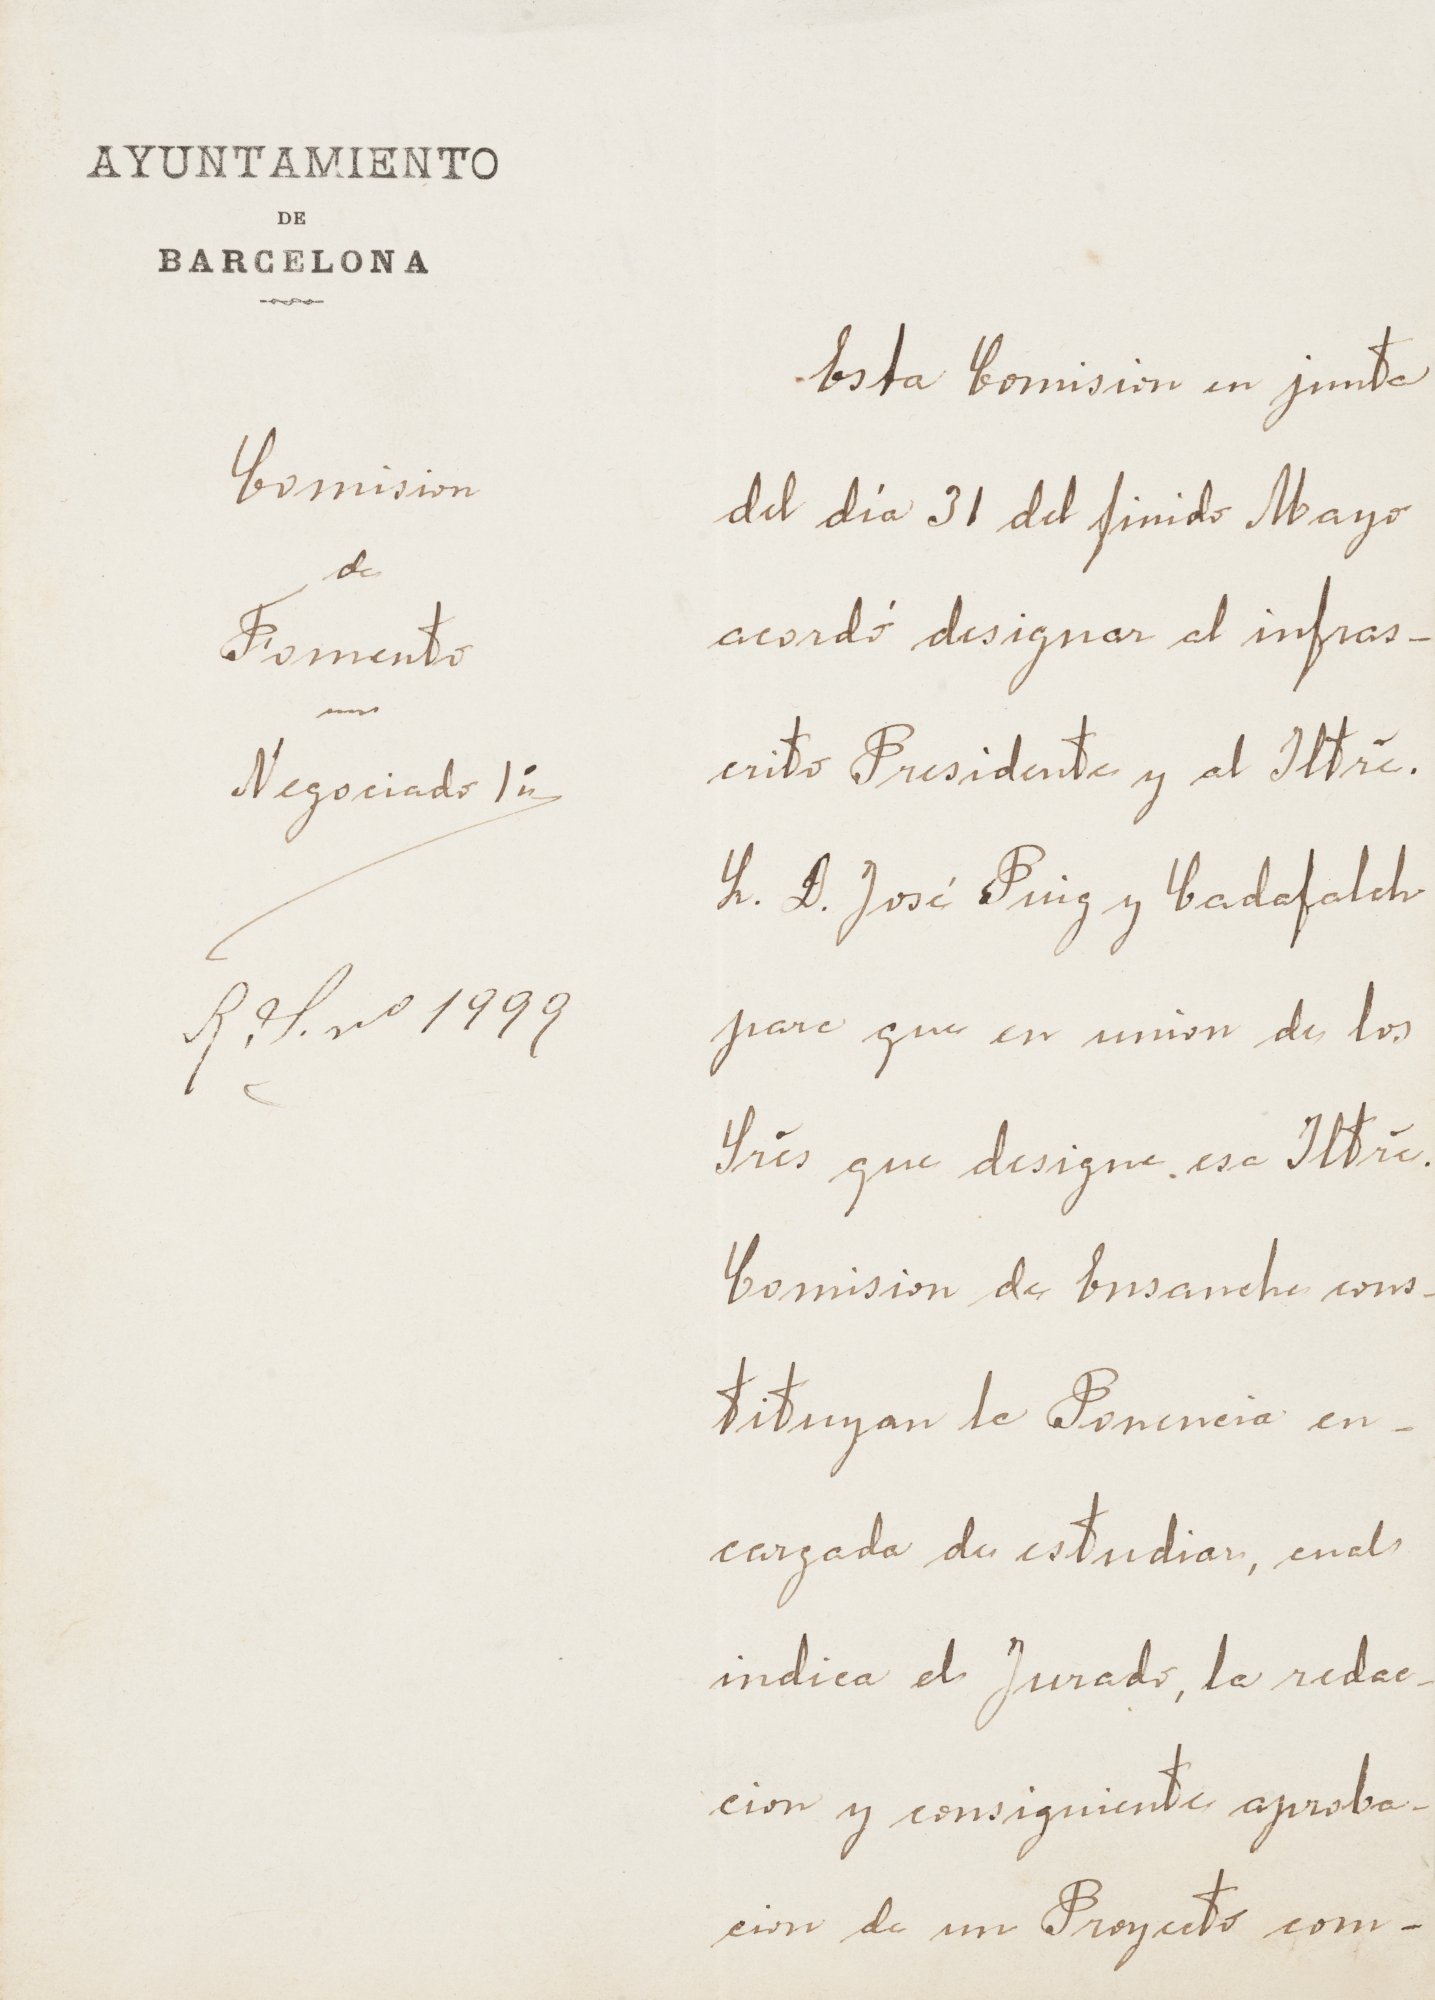 AYUNTAMIENTO
DE
BARCELONA
Comision
de
Fomento
Negociado 1º
R. S. nº 1999
Esta Comision en junta
del día 31 del finido Mayo
acordó designar al infras-
crito Presidente y al Iltre.
S. D. José Puig y Cadafalch
para que en union de los
Sres que designe esa Iltre.
Comision de Ensanche cons-
tituyan la Ponencia en-
cargada de estudiar, cual
indica el Jurado, la redac-
cion y consiguiente aproba-
cion de un Proyecto com-